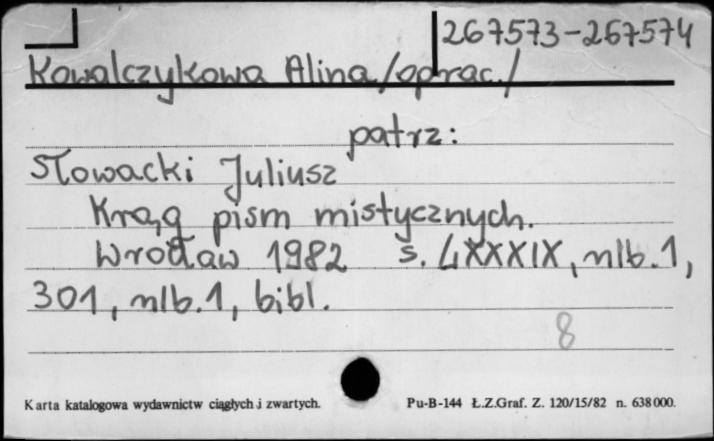 267573-267574
Kowalczykowa Alina /oprac./
patrz:
Słowacki Juliusz
Krąg pism mistycznych.
Wrocław 1982 s. LXXXIX, nlb. 1,
301, nlb. 1, bibl.
8
Karta katalogowa wydawnictw ciągłych i zwartych. Pu-B-144 Ł.Z.Graf. Z. 120/15/82 n. 638000.